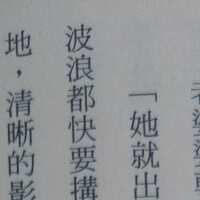 「她就出
波浪都快要搆
地，清晰的影